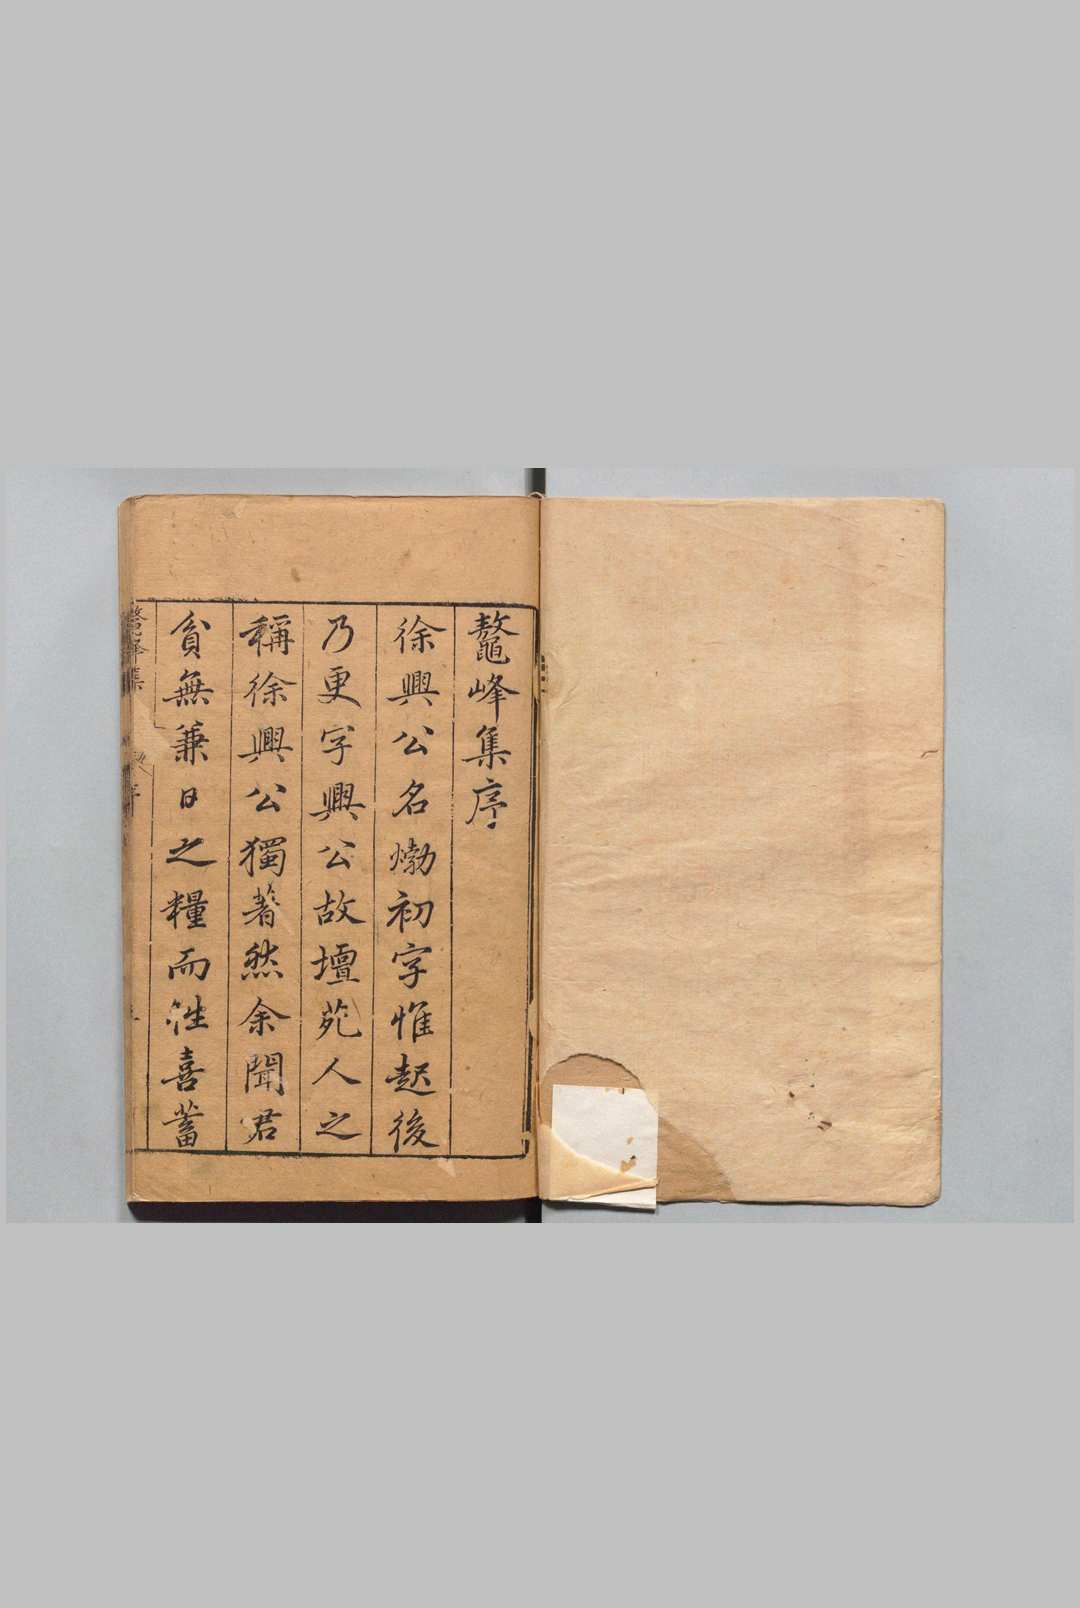 鼇峰集序
徐興公名㶿初字惟起後
乃更字興公故壇苑人之
稱徐興公獨著然余聞君
貧無兼日之糧而性喜蓄
鼇峰集
序